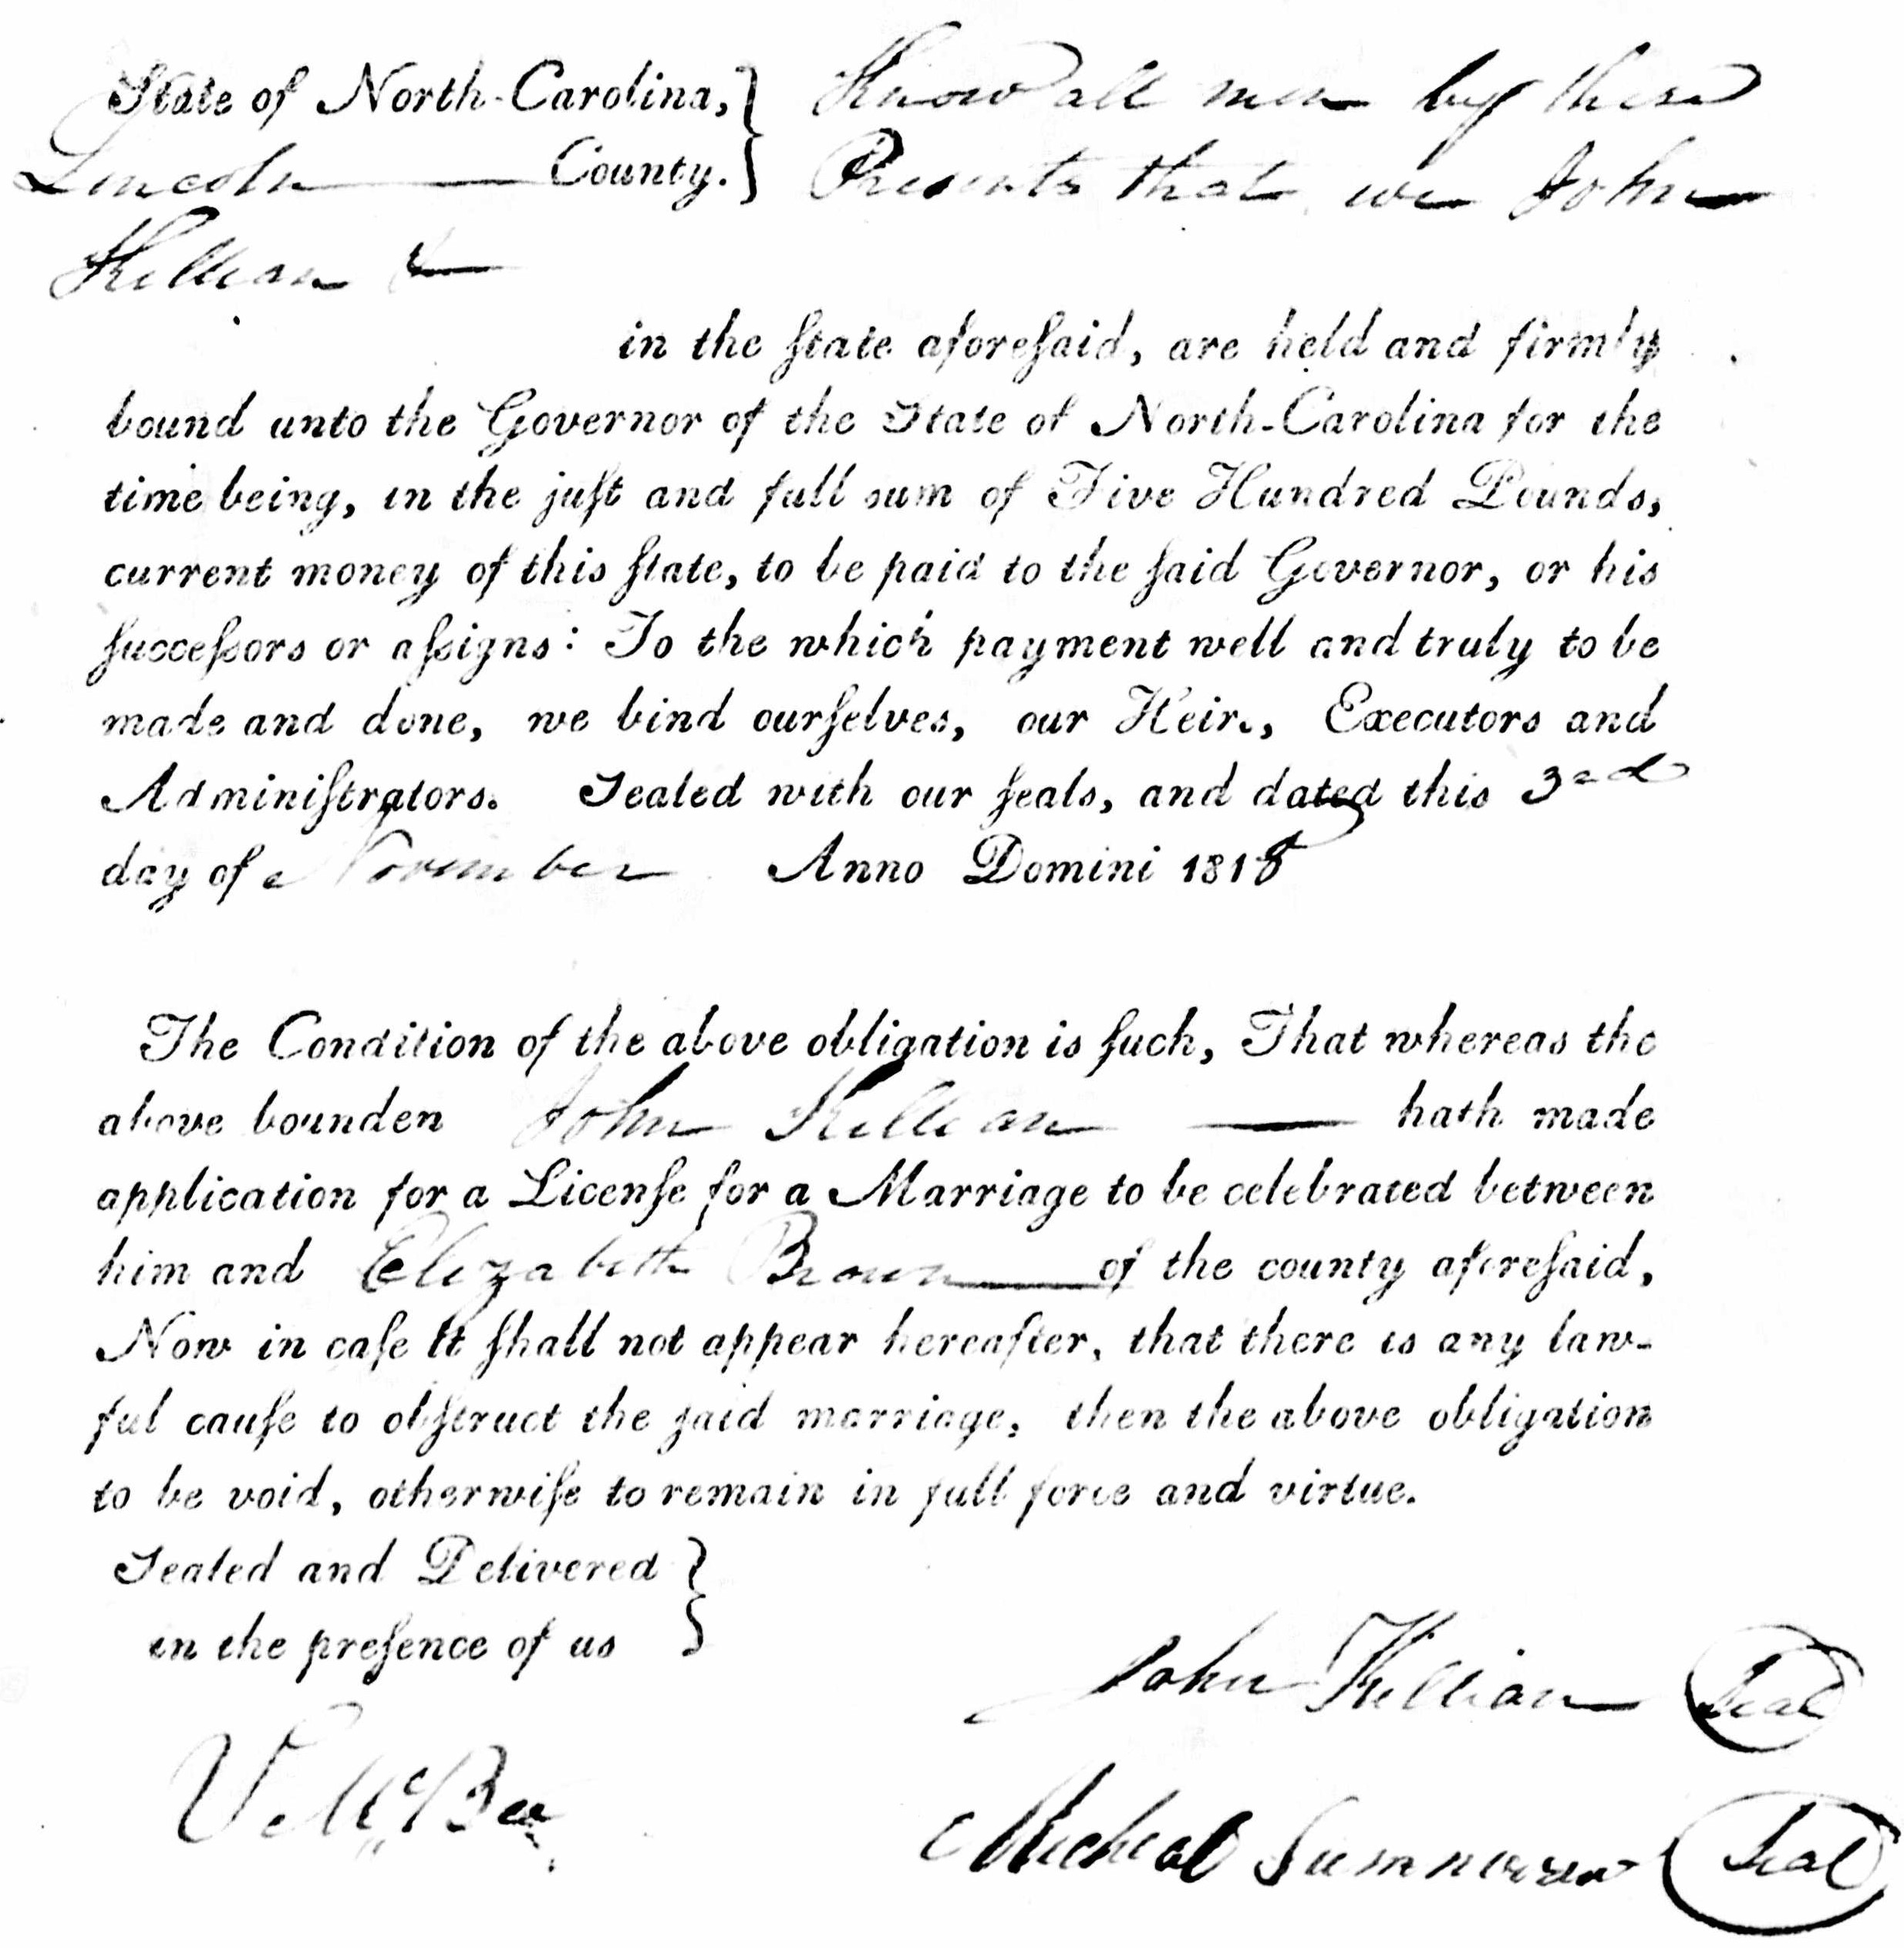 State of North-Carolina, } Know all men by these
Lincoln County. } Presents that we John
Killian &
in the ſtate aforeſaid, are held and firmly
bound unto the Governor of the State of North-Carolina for the
time being, in the juſt and full sum of Five Hundred Pounds,
current money of this ſtate, to be paid to the ſaid Governor, or his
ſucceſsors or aſsigns: To the which payment well and truly to be
made and done, we bind ourſelves, our Heirs, Executors and
Adminiſtrators. Sealed with our ſeals, and dated this 3rd
day of November Anno Domini 1818
The Condition of the above obligation is ſuch, That whereas the
above bounden John Killian hath made
application for a Licenſe for a Marriage to be celebrated between
him and Elizabeth Brown of the county aforeſaid,
Now in caſe it ſhall not appear hereafter, that there is any law-
ful cauſe to obſtruct the ſaid marriage, then the above obligation
to be void, otherwiſe to remain in full force and virtue.
Sealed and Delivered }
in the preſence of us }
John Killian Seal
V. McBee
Micheal Seal